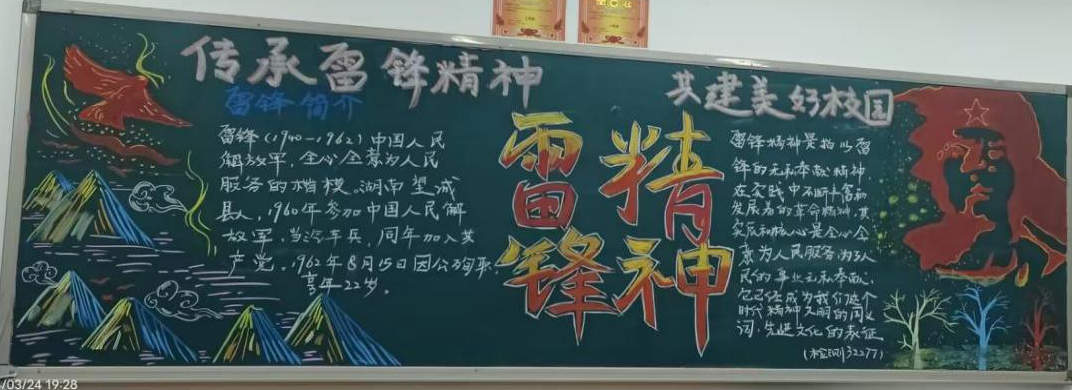 传承雷锋精神
共建美好校园
雷锋简介
雷锋(1940—1962)中国人民
解放军,全心全意为人民
服务的楷模,湖南望城
县人,1960年参加中国人民解
放军,当汽车兵,同年加入共
产党,1962年8月15日因公殉职.
享年22岁。
雷精
锋神
雷锋精神是指以雷
锋的无私奉献精神
在实践中不断丰富和
发展着的革命精神,其
实质和核心是全心全
意为人民服务,为了人
民的事业无私奉献,
它已经成为我们这个
时代精神文明的同义
词,先进文化的表征
(检测32277)
/03/24 19:28